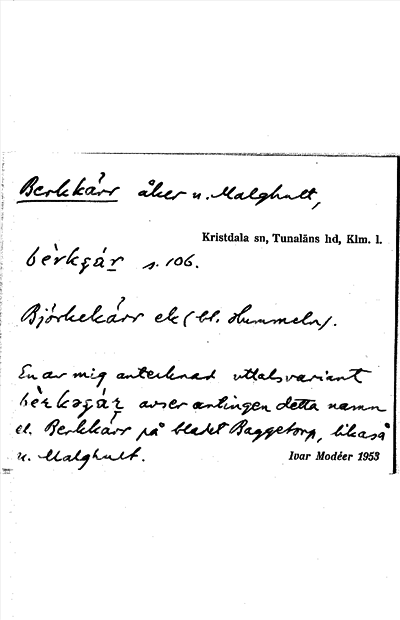 Berkkärr åker u. Malghult,
Kristdala sn, Tunaläns hd, Klm. l.
bèrkçár s. 106.
Björkekärr ek (bl. Hummeln).
En av mig antecknad uttalsvariant
bèrkəçár avser antingen detta namn
el. Berkkärr på bladet Baggetorp, likaså
u. Malghult.
Ivar Modéer 1953